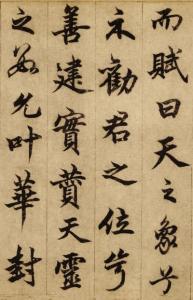 而賦曰天之象兮
示勸君之位兮
善建實賚天靈
之允叶華封